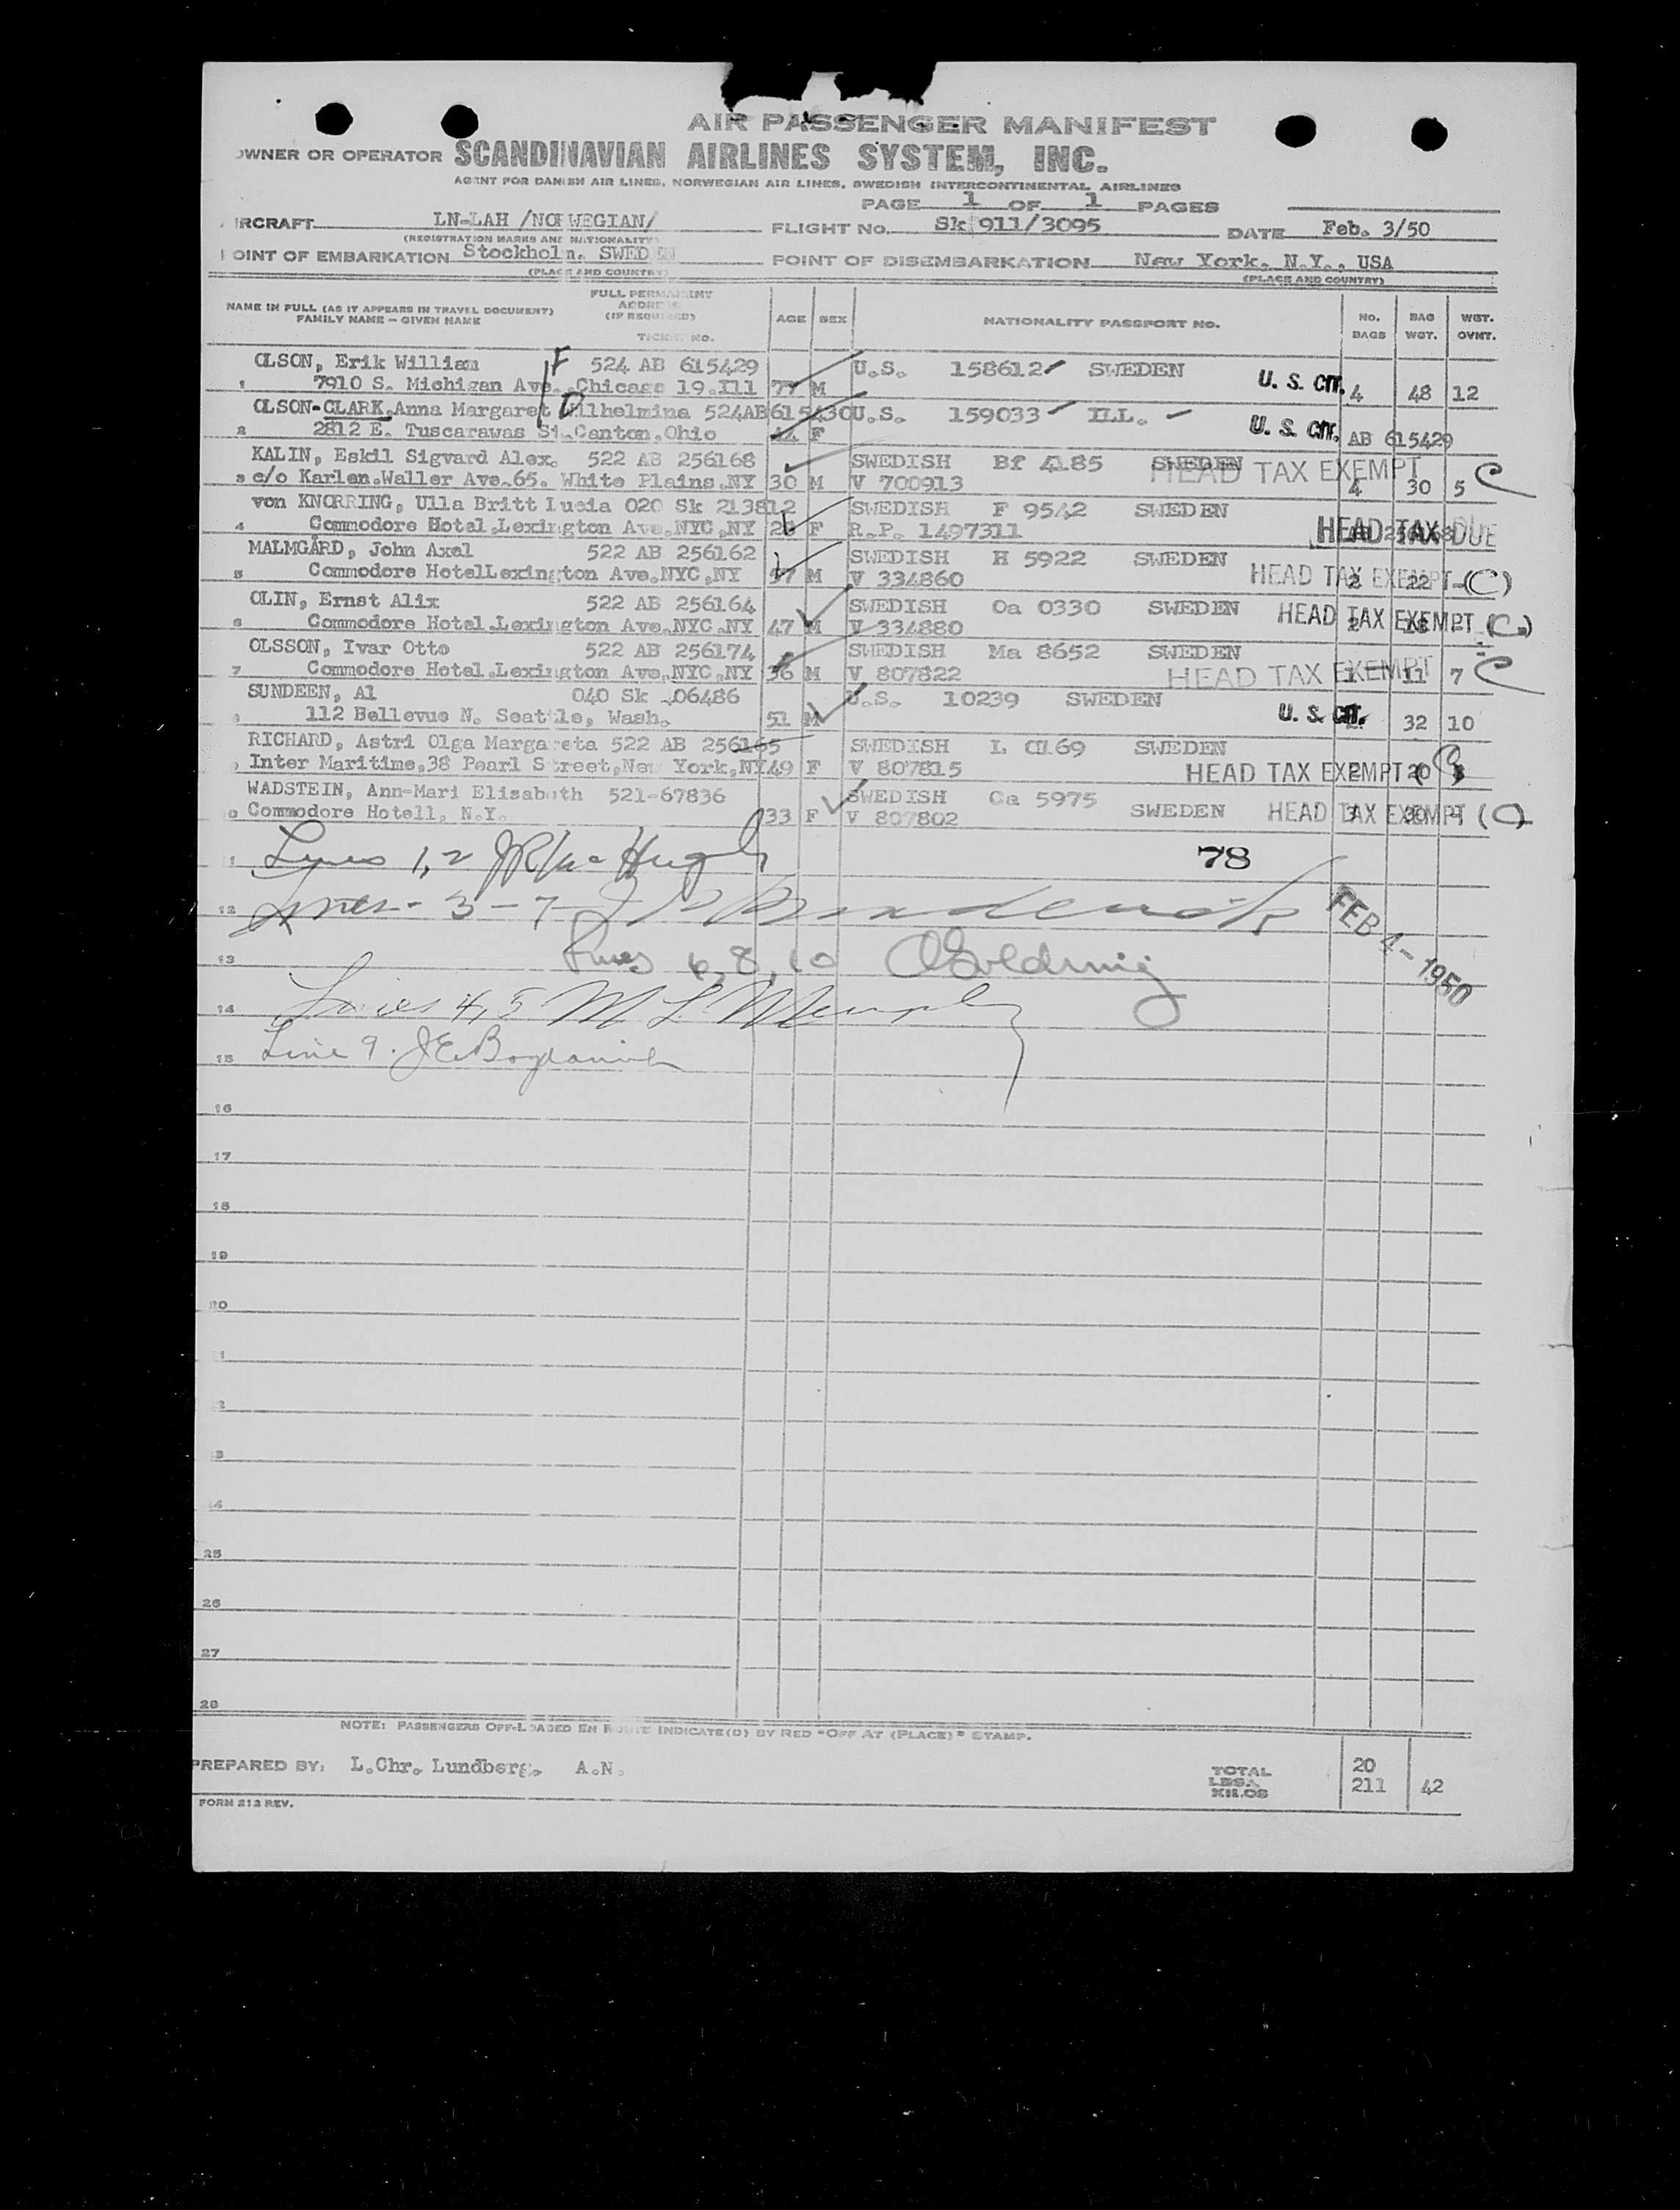 AIR PASSENGER MANIFEST
OWNER OR OPERATOR SCANDINAVIAN AIRLINES SYSTEM, INC.
AGENT FOR DANISH AIR LINES, NORWEGIAN AIR LINES, SWEDISH INTERCONTINENTAL AIRLINES
PAGE 1 OF 1 PAGES
AIRCRAFT LN-LAH /NORWEGIAN/ FLIGHT NO. Sk 911/3095 DATE Feb. 3/50
(REGISTRATION MARKS AND NATIONALITY)
POINT OF EMBARKATION Stockholm, SWEDEN POINT OF DISEMBARKATION New York, N.Y., USA
(PLACE AND COUNTRY) (PLACE AND COUNTRY)
NAME IN FULL (AS IT APPEARS IN TRAVEL DOCUMENT) FAMILY NAME - GIVEN NAME FULL PERMANENT ADDRESS (IF REQUIRED) TICKET NO. AGE SEX NATIONALITY PASSPORT NO. NO. BAGS BAG WGT. WGT. OVWT.
OLSON, Erik William F 524 AB 615429 U.S. 158612 SWEDEN
1 7910 S. Michigan Ave. Chicago 19.Ill 77 M U. S. CIT. 4 48 12
OLSON-CLARK,Anna Margaret Wilhelmina 524AB615430 U.S. 159033 ILL.
2 2812 E. Tuscarawas St.Canton.Ohio F U. S. CIT. AB 615429
KALIN, Eskil Sigvard Alex. 522 AB 256168 SWEDISH Bf 4185 SWEDEN HEAD TAX EXEMPT
3 c/o Karlen.Waller Ave.65. White Plains.NY 30 M V 700913 4 30 5 C
von KNORRING, Ulla Britt Lucia 020 Sk 213812 SWEDISH F 9542 SWEDEN
4 Commodore Hotel,Lexington Ave.NYC,NY F R.P. 1497311 HEAD TAX DUE
MALMGÅRD, John Axel 522 AB 256162 SWEDISH H 5922 SWEDEN
5 Commodore HotelLexington Ave.NYC,NY M V 334860 HEAD TAX EXEMPT 2 22 - (C)
OLIN, Ernst Alix 522 AB 256164 SWEDISH Oa 0330 SWEDEN HEAD TAX EXEMPT (C)
6 Commodore Hotel.Lexington Ave.NYC.NY 47 M V 334880 2
OLSSON, Ivar Otto 522 AB 256174 SWEDISH Ma 8652 SWEDEN
7 Commodore Hotel.Lexington Ave.NYC.NY 36 M V 807822 HEAD TAX EXEMPT 1 11 7 C
SUNDEEN, Al 040 Sk 06486 U.S. 10239 SWEDEN
112 Bellevue N. Seattle, Wash. 51 M U. S. CIT. 32 10
RICHARD, Astri Olga Margareta 522 AB 256165 SWEDISH L 0169 SWEDEN
Inter Maritime,38 Pearl Street,New York,NY 49 F V 807815 HEAD TAX EXEMPT 2 20 (C)
WADSTEIN, Ann-Mari Elisabeth 521-67836 SWEDISH Ca 5975
Commodore Hotell, N.Y. 33 F V 807802 SWEDEN HEAD TAX EXEMPT (C)
11 Lines 1,2 JR McHugh 78
12 Lines - 3 - 7 FEB 4 - 1950
13 Lines 6,8,10 Goldring
14 Lines 4,5 M L Murphy
15 Line 9. JE
16
17
18
19
20
21
22
23
24
25
26
27
28
NOTE: PASSENGERS OFF-LOADED EN ROUTE INDICATE(D) BY RED "OFF AT (PLACE)" STAMP.
PREPARED BY: L.Chr. Lundberg. A.N. TOTAL 20
LBS. KILOS 211 42
FORM 212 REV.